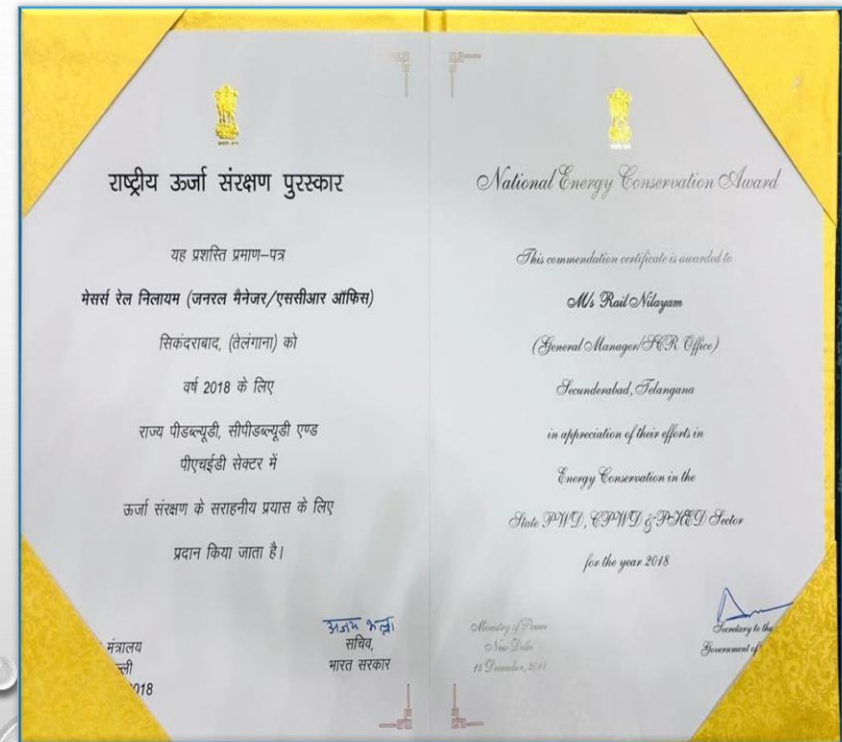 राष्ट्रीय ऊर्जा संरक्षण पुरस्कार
यह प्रशस्ति प्रमाण–पत्र
मेसर्स रेल निलायम (जनरल मैनेजर/एससीआर ऑफिस)
सिकंदराबाद, (तेलंगाना) को
वर्ष 2018 के लिए
राज्य पीडब्ल्यूडी, सीपीडब्ल्यूडी एण्ड
पीएचईडी सेक्टर में
ऊर्जा संरक्षण के सराहनीय प्रयास के लिए
प्रदान किया जाता है।
अजय भल्ला
सचिव,
भारत सरकार
मंत्रालय
018
National Energy Conservation Award
This commendation certificate is awarded to
M/s Rail Nilayam
(General Manager/SCR Office)
Secunderabad, Telangana
in appreciation of their efforts in
Energy Conservation in the
State PWD, CPWD & PHED Sector
for the year 2018
Ministry of Power
New Delhi
14 December, 2018
Secretary to the
Government of